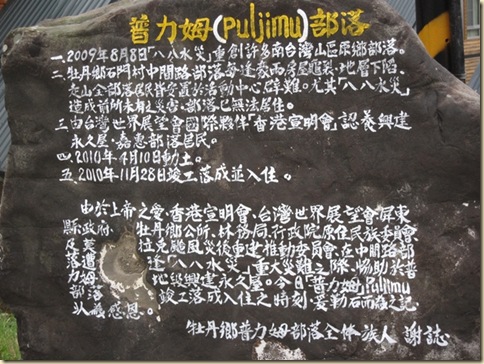 普力姆(Puljimu)部落
一、2009年8月8日「八八水災」重創許多南台灣山區原鄉部落。
二、牡丹鄉石門村中間路部落每逢豪雨房屋龜裂、地層下陷
走山全部落居民皆安置於活動中心避難。尤其「八八水災」
造成前所未有之災害,部落已無法居住。
三、由台灣世界展望會國際夥伴「香港宣明會」認養興建
永久屋,嘉惠部落居民。
四、2010年4月10日動土。
五、2010年11月28日竣工落成並入住。
由於上帝之愛、香港宣明會、台灣世界展望會、屏東
縣政府、牡丹鄉公所、林務局、行政院原住民族委員會
及莫拉克颱風災後重建推動委員會,在中間路部
落遭逢「八八水災」重大災難之際,協助於普
力姆地級興建永久屋。今日「普力姆」Puljimu
部落竣工落成入住之時刻、勒石而為之記
以誌感恩。
牡丹鄉普力姆部落全体族人 謝誌